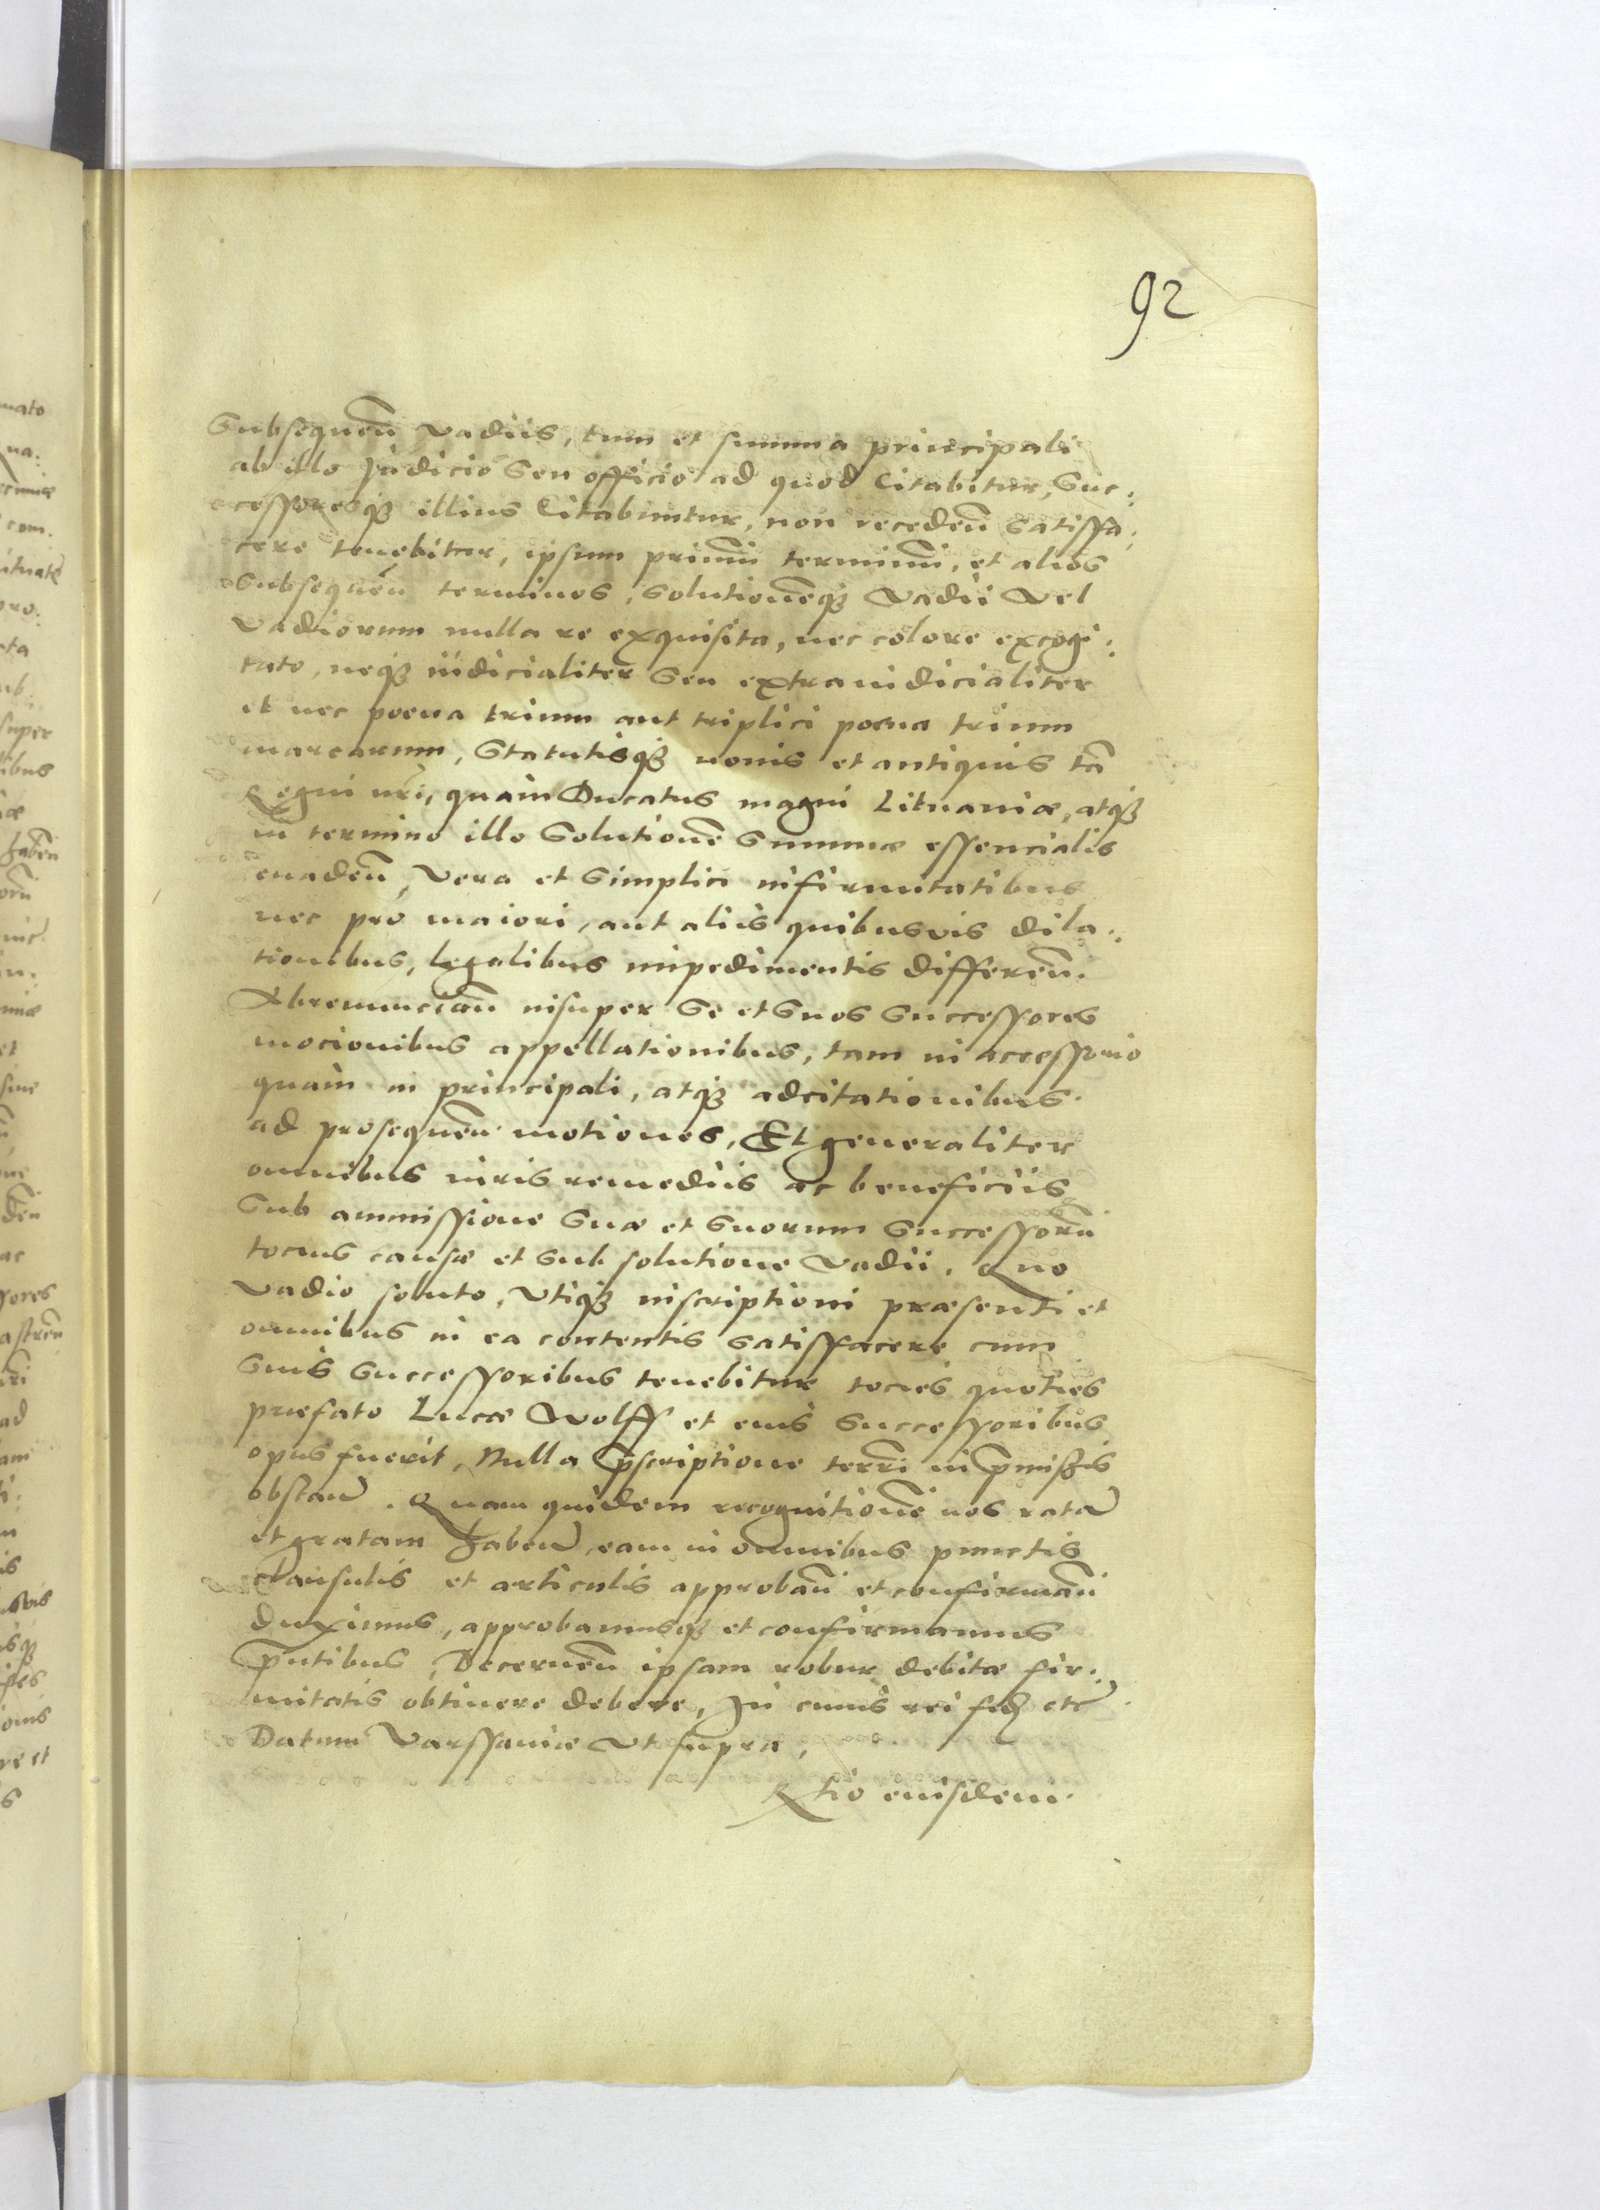 92
Subsequen̄ vadiis, tum et summa principali
ab illo Judicio seu officio ad quod Citabitur, Suc:
cessoresq̨ illius Citabuntur, non receden̄ satisfa:
cere tenebitur, ipsum primū terminū, et alios
subsequen̄ terminos, solutionēq̨ Vadii Vel
Vadiorum nulla re exquisita, nec colore excogi:
tato, neq̨ iudicialiter seu extraiudicialiter
et nec poena trium aut triplici poena trium
marcarum, Statutisq̨ novis et antiquis tā
Regni nr̄i, quam Ducatus magni Lituaniæ, atq̨
in termino illo Solutionē Summæ essencialis
evaden̄, Vera et Simplici infirmitatibus
nec pro maiori, aut aliis quibusvis dila:
tionibus, legalibus impedimentis differen̄.
Abrenuncian̄ insuper Se et Suos Successores
mocionibus appellationibus, tam in accessorio
quam in principali, atq̨ adcitationibus
ad prosequen̄ motiones, Et generaliter
omnibus iuris remediis ac beneficiis
Sub ammissione Suæ et Suorum Successorū
tocius causæ et sub solutione Vadii. Quo
Vadio soluto, Utiq̨ inscriptioni præsenti et
omnibus in ea contentis satisfacere cum
Suis Successoribus tenebitur tocies quoties
præfato Lucæ Wolff et eius Successoribus
opus fuerit, Nulla p̄scriptione terrī in p̄missis
obstan̄. Quam quidem recognitionē nos ratā
et gratam haben̄ eam in omnibus punctis
clausulis et articulis approban̄ et confirman̄
duximus, approbamusq̨ et confirmamus
p̄ntibus, Decernen̄ ipsam robur debitæ fir:
mitatis obtinere debere, In cuius rei fid̨ etc̄
Datum Varssaviæ Ut supra,
Rtio eiusdem.